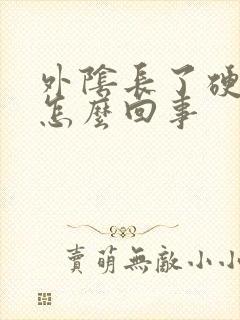 外陰長了硬
怎麼回事
賣萌無敵小小